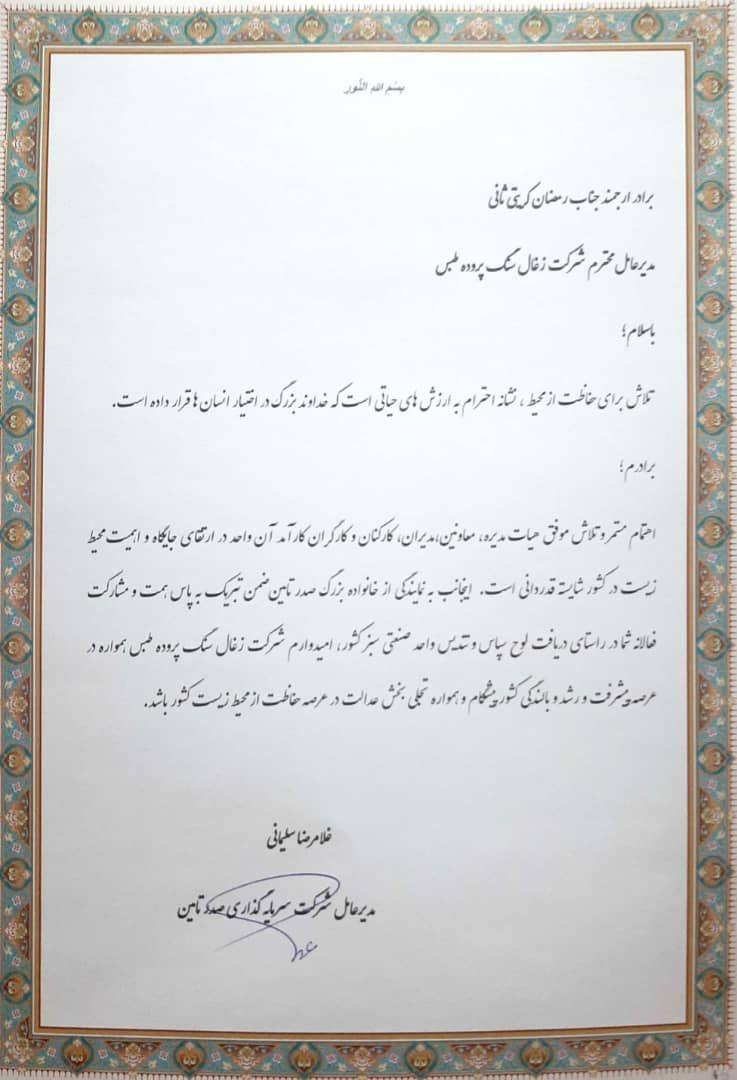 بِسْمِ اللهِ النُّورِ
برادر ارجمند جناب رمضان کریتی ثانی
مدیرعامل محترم شرکت زغال سنگ پروده طبس
باسلام؛
تلاش برای حفاظت از محیط ، نشانه احترام به ارزش های حیاتی است که خداوند بزرگ در اختیار انسان ها قرار داده است.
برادرم؛
اهتمام مستمر و تلاش موفق هیات مدیره، معاونین،مدیران، کارکنان و کارگران کارآمد آن واحد در ارتقای جایگاه و اهمیت محیط
زیست در کشور شایسته قدردانی است. اینجانب به نمایندگی از خانواده بزرگ صدر تامین ضمن تبریک به پاس همت و مشارکت
فعالانه شما در راستای دریافت لوح سپاس و تندیس واحد صنعتی سبز کشور، امیدوارم شرکت زغال سنگ پروده طبس همواره در
عرصه پیشرفت و رشد و بالندگی کشور پیشگام و همواره تجلی بخش عدالت در عرصه حفاظت از محیط زیست کشور باشد.
غلامرضا سلیمانی
مدیرعامل شرکت سرمایه گذاری صدر تامین